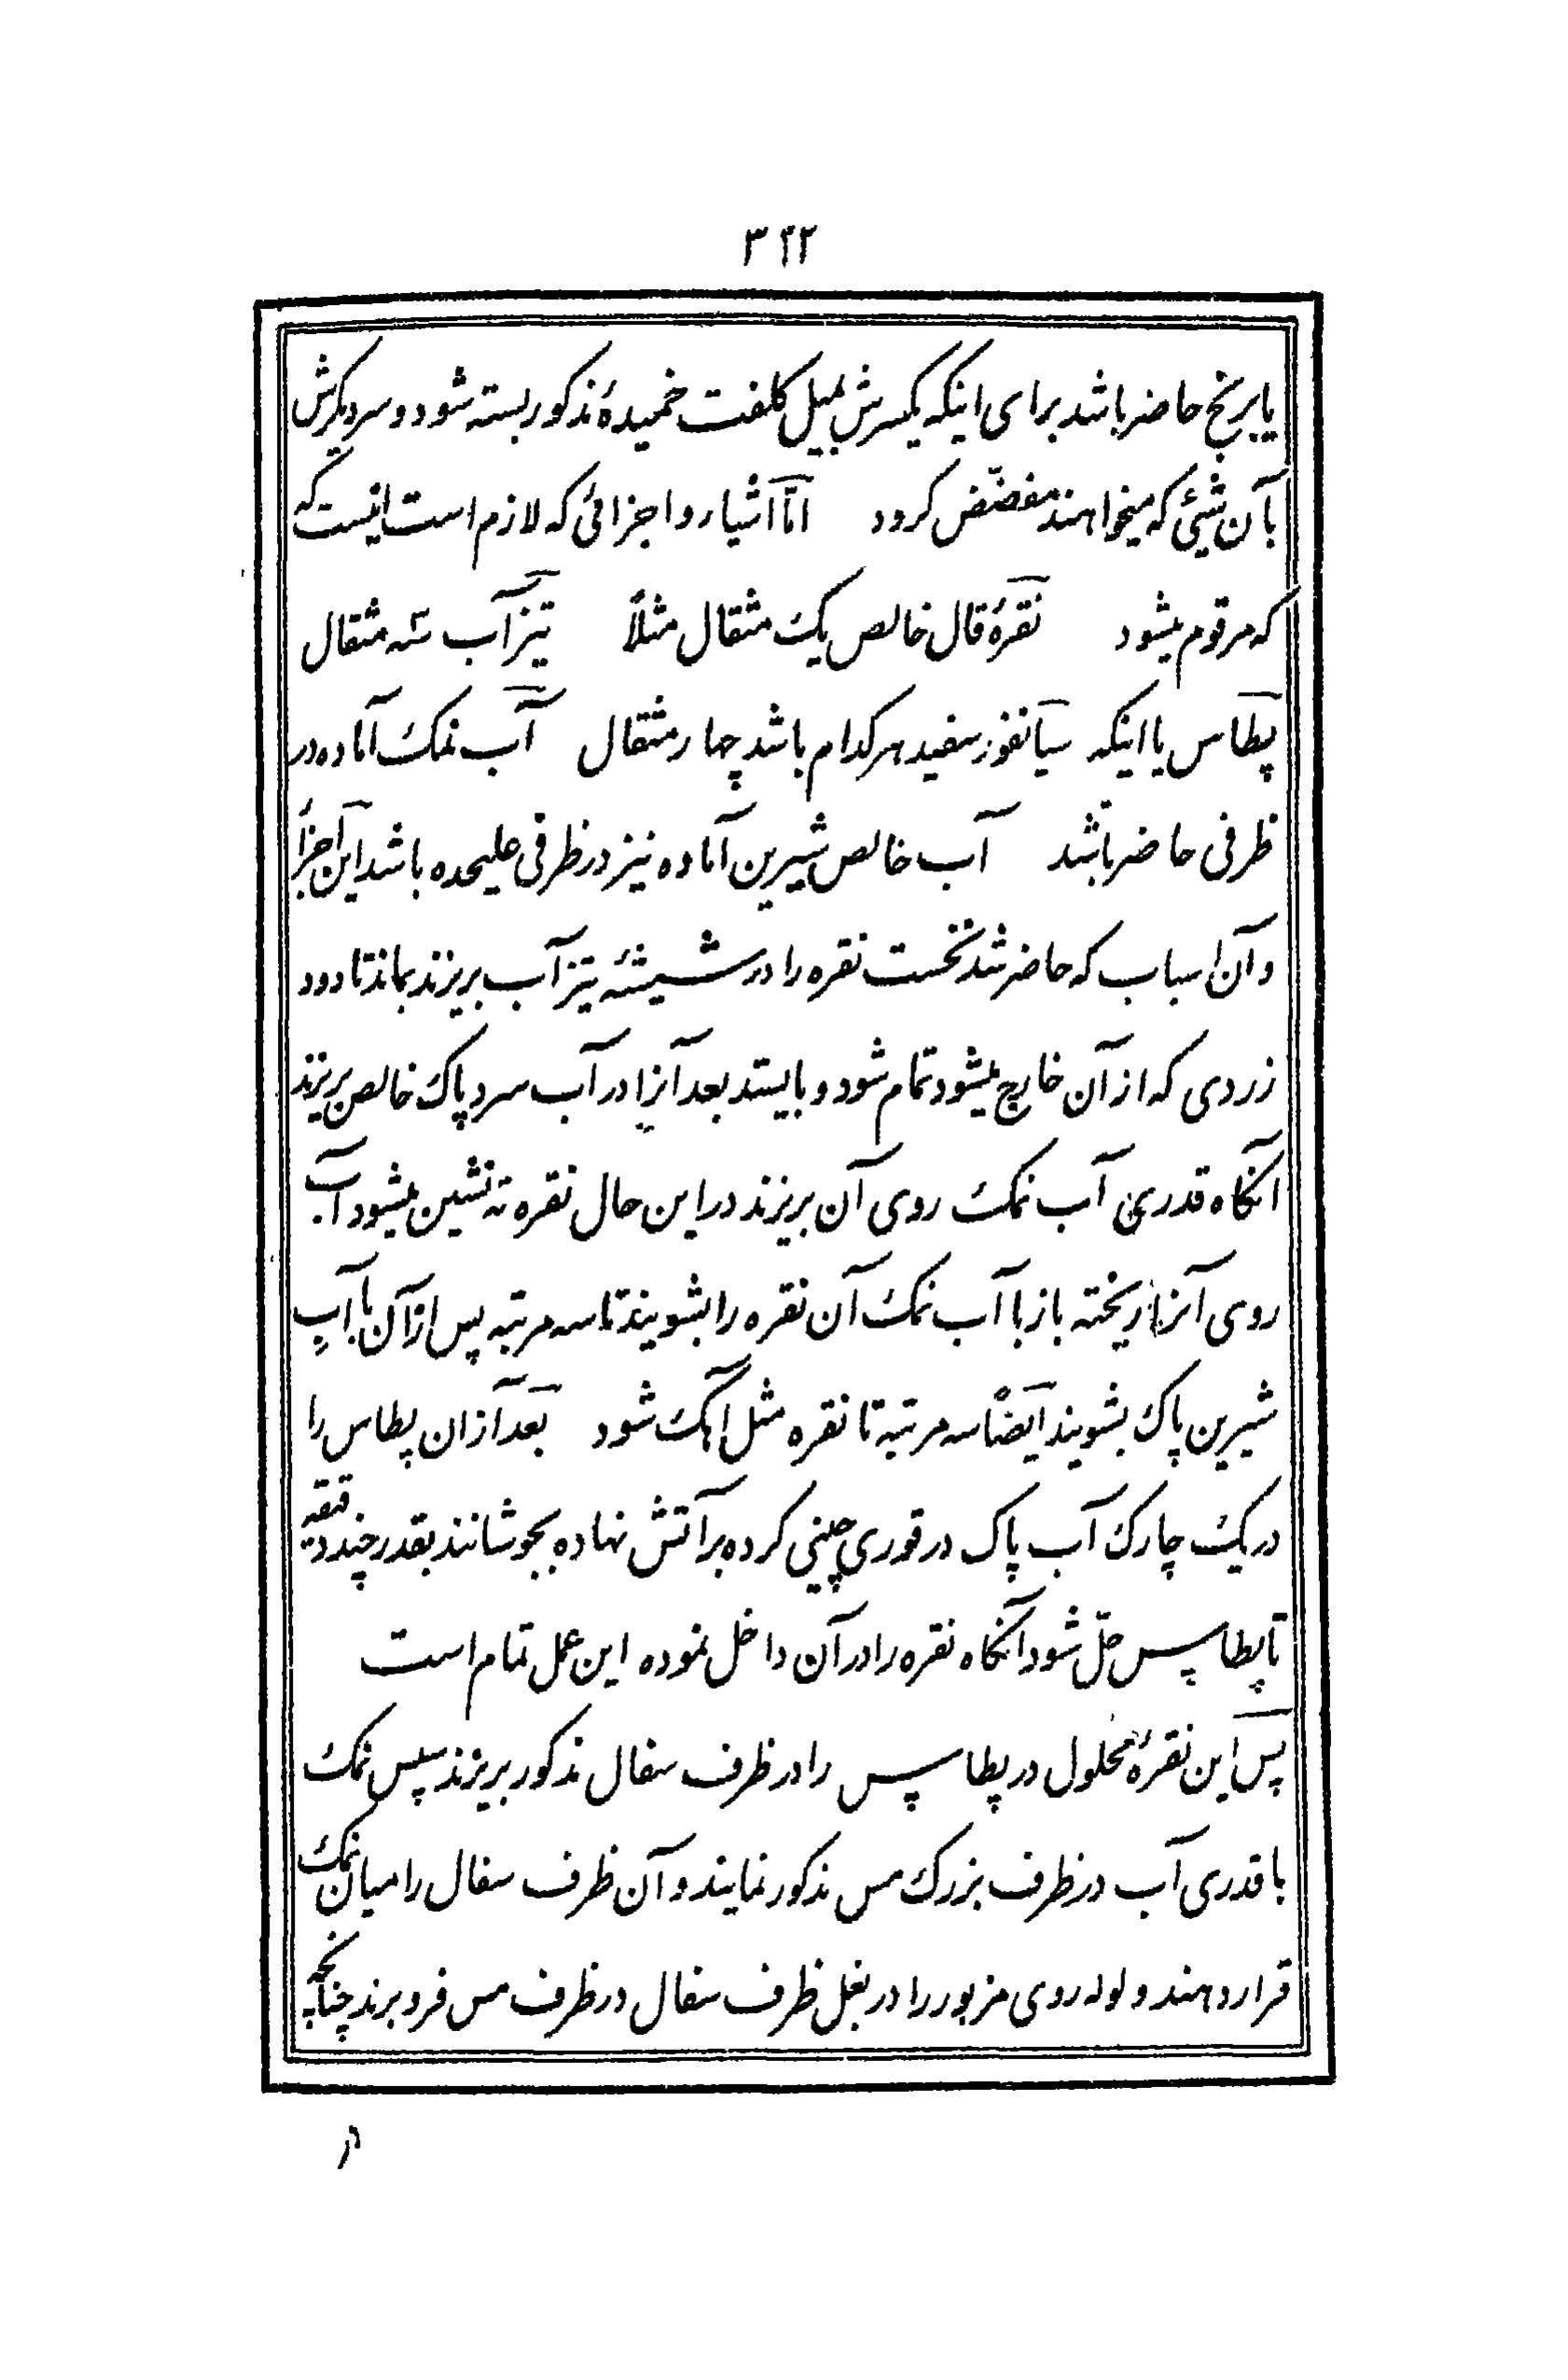 ۳۲۲
یا برنج حاضر باشد برای اینکه یکسرش بمیل کلفت خمیدهٔ مذکور بسته شود و سر دیگرش
بآن شیئی که میخواهند مفضّض کرود امّا اشیاء و اجزائی که لازم است اینست که
که مرقوم میشود نقرهٔ قال خالص یک مثقال مثلاً تیزآب سه مثقال
پطاس یا اینکه سیانفور سفید هر کدام باشد چهار مثقال آب نمک آماده در
ظرفی حاضر باشد آب خالص شیرین آماده نیز در ظرفی علیحده باشد این اجزا
و آن اسباب که حاضر شد نخست نقره را در شیشهٔ تیزآب بریزند بماند تا دود
زردی که از آن خارج میشود تمام شود و بایستد بعد آنرا در آب سرد پاک خالص بریزند
آنگاه قدری آب نمک روی آن بریزند در این حال نقره ته نشین میشود آب
روی آنرا ریخته باز با آب نمک آن نقره را بشویند تا سه مرتبه پس از آن با آبِ
شیرین پاک بشویند ایضاً سه مرتبه تا نقره مثل آهک شود بعد از آن پطاس را
در یک چارک آب پاک در قوری چینی کرده بر آتش نهاده بجوشانند بقدر چند دقیقه
تا پطاس حلّ شود آنگاه نقره را در آن داخل نموده این عمل تمام است
پس این نقرهٔ محلول در پطاس را در ظرف سفال مذکور بریزند سپس نمک
با قدری آب در ظرف بزرگ مس مذکور نمایند و آن ظرف سفال را میان نمک
قرار دهند و لوله روی مزبور را در بغل ظرف سفال در ظرف مس فرو برند چنانچه